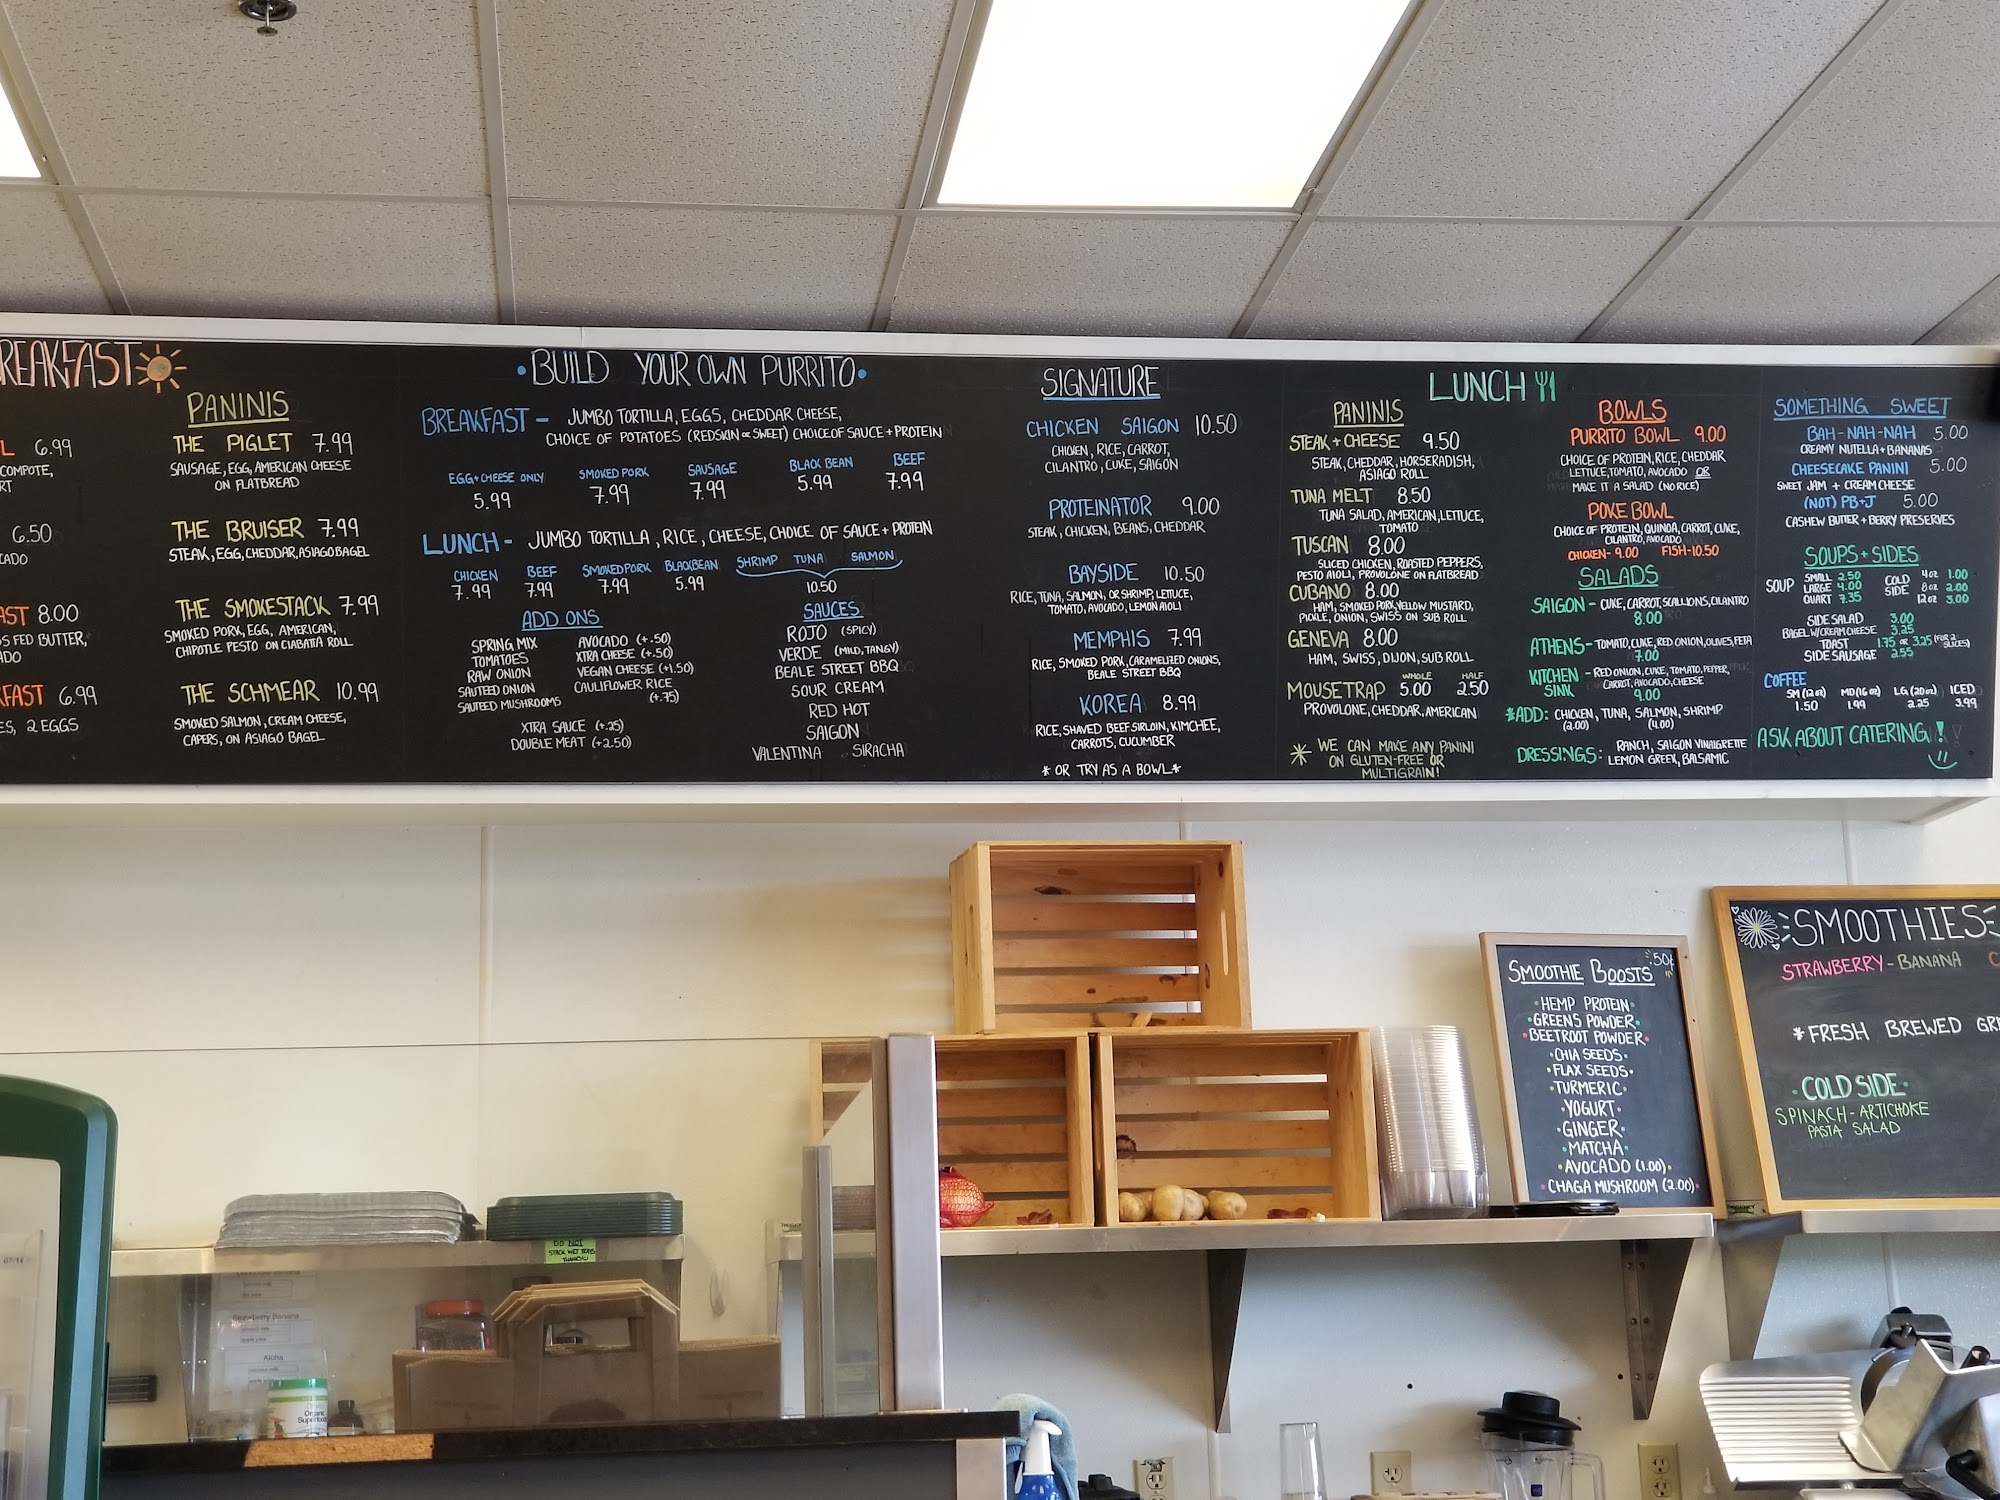 REAKFAST
L 6.99
COMPOTE,
RT
6.50
CADO
AST 8.00
S FED BUTTER,
ADO
KFAST 6.99
ES, 2 EGGS
PANINIS
THE PIGLET 7.99
SAUSAGE, EGG, AMERICAN CHEESE
ON FLATBREAD
THE BRUISER 7.99
STEAK, EGG, CHEDDAR, ASIAGO BAGEL
THE SMOKESTACK 7.99
SMOKED PORK, EGG, AMERICAN,
CHIPOTLE PESTO ON CIABATTA ROLL
THE SCHMEAR 10.99
SMOKED SALMON, CREAM CHEESE,
CAPERS, ON ASIAGO BAGEL
• BUILD YOUR OWN PURRITO •
BREAKFAST - JUMBO TORTILLA, EGGS, CHEDDAR CHEESE,
CHOICE OF POTATOES (REDSKIN OR SWEET) CHOICE OF SAUCE + PROTEIN
EGG + CHEESE ONLY SMOKED PORK SAUSAGE BLACK BEAN BEEF
5.99 7.99 7.99 5.99 7.99
LUNCH - JUMBO TORTILLA, RICE, CHEESE, CHOICE OF SAUCE + PROTEIN
CHICKEN BEEF SMOKED PORK BLACKBEAN SHRIMP TUNA SALMON
7.99 7.99 7.99 5.99 10.50
ADD ONS
SPRING MIX
TOMATOES
RAW ONION
SAUTEED ONION
SAUTEED MUSHROOMS
AVOCADO (+.50)
XTRA CHEESE (+.50)
VEGAN CHEESE (+1.50)
CAULIFLOWER RICE
(+.75)
XTRA SAUCE (+.25)
DOUBLE MEAT (+2.50)
SAUCES
ROJO (SPICY)
VERDE (MILD, TANGY)
BEALE STREET BBQ
SOUR CREAM
RED HOT
SAIGON
VALENTINA SIRACHA
SIGNATURE
CHICKEN SAIGON 10.50
CHICKEN, RICE, CARROT,
CILANTRO, CUKE, SAIGON
PROTEINATOR 9.00
STEAK, CHICKEN, BEANS, CHEDDAR
BAYSIDE 10.50
RICE, TUNA, SALMON, OR SHRIMP, LETTUCE,
TOMATO, AVOCADO, LEMON AIOLI
MEMPHIS 7.99
RICE, SMOKED PORK, CARAMELIZED ONIONS,
BEALE STREET BBQ
KOREA 8.99
RICE, SHAVED BEEF SIRLOIN, KIMCHEE,
CARROTS, CUCUMBER
* OR TRY AS A BOWL *
LUNCH
PANINIS
STEAK + CHEESE 9.50
STEAK, CHEDDAR, HORSERADISH,
ASIAGO ROLL
TUNA MELT 8.50
TUNA SALAD, AMERICAN, LETTUCE,
TOMATO
TUSCAN 8.00
SLICED CHICKEN, ROASTED PEPPERS,
PESTO AIOLI, PROVOLONE ON FLATBREAD
CUBANO 8.00
HAM, SMOKED PORK, YELLOW MUSTARD,
PICKLE, ONION, SWISS ON SUB ROLL
GENEVA 8.00
HAM, SWISS, DIJON, SUB ROLL
WHOLE HALF
MOUSETRAP 5.00 2.50
PROVOLONE, CHEDDAR, AMERICAN
* WE CAN MAKE ANY PANINI
ON GLUTEN-FREE OR
MULTIGRAIN!
BOWLS
PURRITO BOWL 9.00
CHOICE OF PROTEIN, RICE, CHEDDAR
LETTUCE, TOMATO, AVOCADO OR
MAKE IT A SALAD (NO RICE)
POKE BOWL
CHOICE OF PROTEIN, QUINOA, CARROT, CUKE,
CILANTRO, AVOCADO
CHICKEN - 9.00 FISH - 10.50
SALADS
SAIGON - CUKE, CARROT, SCALLIONS, CILANTRO
8.00
ATHENS - TOMATO, CUKE, RED ONION, OLIVES, FETA
7.00
KITCHEN SINK - RED ONION, CUKE, TOMATO, PEPPER,
CARROT, AVOCADO, CHEESE
9.00
*ADD: CHICKEN, TUNA, SALMON, SHRIMP
(2.00) (4.00)
DRESSINGS: RANCH, SAIGON VINAIGRETTE
LEMON GREEK, BALSAMIC
SOMETHING SWEET
BAH-NAH-NAH 5.00
CREAMY NUTELLA + BANANAS
CHEESECAKE PANINI 5.00
SWEET JAM + CREAM CHEESE
(NOT) PB+J 5.00
CASHEW BUTTER + BERRY PRESERVES
SOUPS + SIDES
SOUP SMALL 2.50
LARGE 4.00
QUART 7.35
COLD SIDE 4oz 1.00
8oz 2.00
12oz 3.00
SIDE SALAD 3.00
BAGEL W/CREAM CHEESE 3.25
TOAST 1.75 OR 3.25 (FOR 2 SLICES)
SIDE SAUSAGE 2.55
COFFEE
SM (12oz) MD (16oz) LG (20oz) ICED
1.50 1.99 2.25 3.99
ASK ABOUT CATERING!
SMOOTHIE BOOSTS .50¢
• HEMP PROTEIN •
• GREENS POWDER •
• BEETROOT POWDER •
• CHIA SEEDS •
• FLAX SEEDS •
• TURMERIC •
• YOGURT •
• GINGER •
• MATCHA •
• AVOCADO (1.00) •
• CHAGA MUSHROOM (2.00) •
SMOOTHIES
STRAWBERRY - BANANA
* FRESH BREWED GR
• COLD SIDE •
SPINACH - ARTICHOKE
PASTA SALAD
DO NOT
STACK WET TRAYS
THANK YOU
Strawberry Banana
Aloha
Organic
Superfood